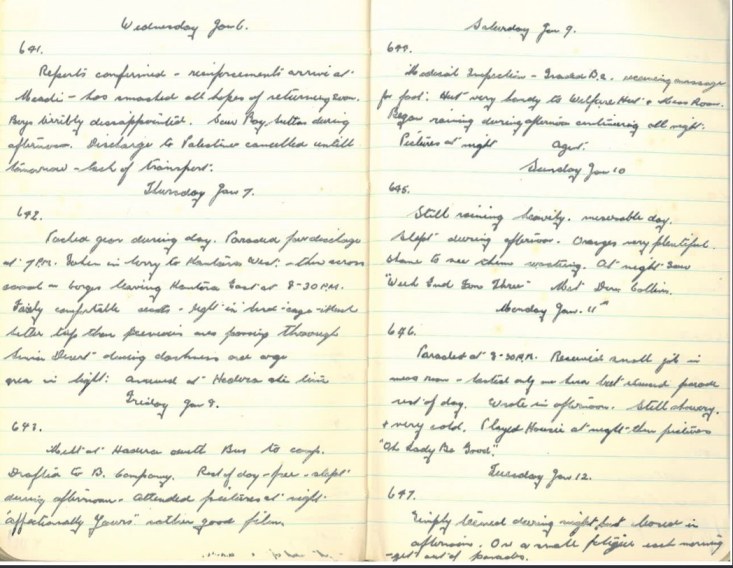 Wednesday Jan 6.
641.
Reports confirmed - reinforcements arrive at
Maadi - has smashed all hopes of returning soon.
Boys terribly dissappointed. Saw Roy during
afternoon. Discharge to Palestine cancelled untill
tomorrow - lack of transport.
Thursday Jan 7.
642.
Packed gear during day. Paraded for discharge
at 7 P.M. Taken in lorry to Kantara West. - then across
canal - leaving Kantara East at 8-30 P.M.
Fairly comfortable seats - slept in - much
better trip than previous one passing through
Sinai Desert during darkness
in light: arrived at Hadera
Friday Jan 8.
643.
Met at Hadera with Bus to camp.
Drafted to B. Company. Rest of day - free - slept
during afternoon. Attended pictures at night.
"Affectionately Yours" rather good film
Saturday Jan 9.
644.
Medical Inspection - Graded B.2. receiving massage
for foot. Hut very handy to Welfare Hut + Mess Room.
Began raining during afternoon continuing all night.
Pictures at night
Sunday Jan 10
645.
Still raining heavily. miserable day.
Slept during afternoon. Oranges very plentiful.
shame to see them wasting. At night saw
"Week End For Three" Met Collins.
Monday Jan. 11th
646.
Paraded at 8-30 A.M. Received small job in
mess room - lasted only an hour but missed parade
rest of day. Wrote in afternoon. Still showery.
+ very cold. Played Housie at night - then pictures
"Oh Lady Be Good".
Tuesday Jan 12.
647.
rained during night, but in
afternoon. On a small fatigue each morning
- get out of parades.